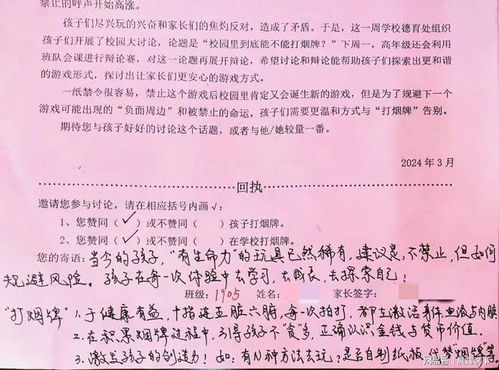 禁止的呼声开始高涨。
孩子们尽兴玩的兴奋和家长们的焦灼反对，造成了矛盾。于是，这一周学校德育处组织
孩子们开展了校园大讨论，论题是“校园里到底能不能打烟牌？”下周一，高年级还会利用
班队会课进行辩论赛，对这一论题再展开辩论，希望讨论和辩论能帮助孩子们探索出更和谐
的游戏形式，探讨出让家长们更安心的游戏方式。
一纸禁令很容易，禁止这个游戏后校园里肯定又会诞生新的游戏，但是为了规避下一个
游戏可能出现的“负面周边”和被禁止的命运，孩子们需要更温和方式与“打烟牌”告别。
期待您与孩子好好的讨论这个话题，或者与他/她较量一番。
2024 年 3 月
回执
邀请您参与讨论，请在相应括号内画√：
1、您赞同（√）或不赞同（ ）孩子打烟牌。
2、您赞同（√）或不赞同（ ）在学校打烟牌。
您的寄语：当今的孩子，“有生命力”的玩具已然稀有，建议是，不禁止，但如何
规避风险。孩子在每一次体验中去学习，去成长，去探索自己！
班级：1905 姓名： 家长签字：
“打烟牌” 1.于健康有益，十指连五脏六腑，每一次拍打，都在激活身体血液与内脏
2.在积累烟牌过程中，引导孩子不“贪”多，正确认识金钱与货币价值。
3.激发孩子的创造力！如：有N种方法去玩；是否自制纸板代替“烟牌”等